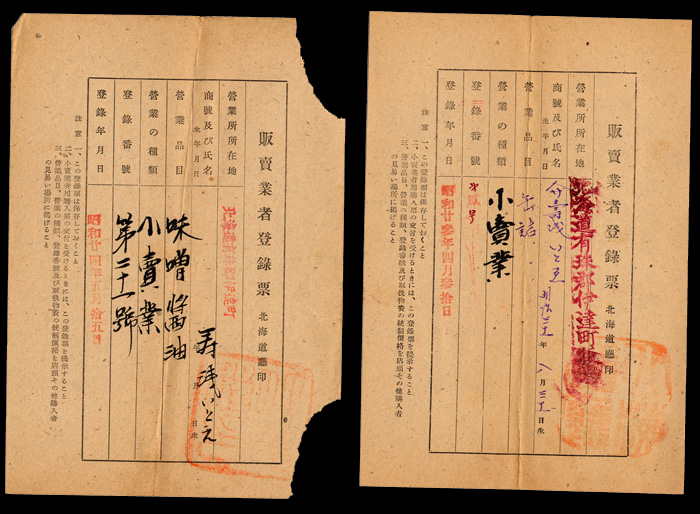 販賣業者登錄票 北海道廳印
營業所所在地 北海道有珠郡伊達町
商號及び氏名
生年月日 年 月 三十 日生
營業品目 缶詰
營業の種類 小賣業
登錄番號 第 號
登錄年月日 昭和廿參年四月參拾日
注意 一、この登錄票は保存しておくこと
二、小賣業者用購入票の交付を受けるときには、この登錄票を提示すること
三、營業品目、營業の種類、登錄番號及び取扱物資の統制價格を店頭その他購入者
の見易い場所に揭げること
販賣業者登錄票 北海道廳印
營業所所在地 北海道有珠郡伊達町
商號及び氏名
生年月日 年 月 日生
營業品目 味噌醬油
營業の種類 小賣業
登錄番號 第二十一號
登錄年月日 昭和廿四年五月拾五日
注意 一、この登錄票は保存しておくこと
二、小賣業者用購入票の交付を受けるときには、この登錄票を提示すること
三、營業品目、營業の種類、登錄番號及び取扱物資の統制價格を店頭その他購入者
の見易い場所に揭げること